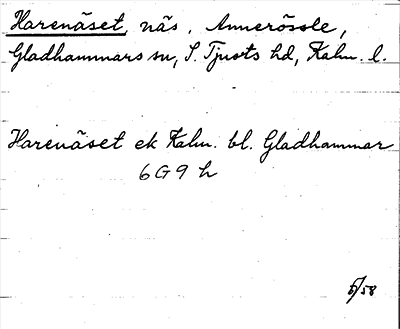 Harenäset, näs, Annerössle,
Gladhammars sn, S. Tjusts hd, Kalm. l.
Harenäset ek Kalm. bl. Gladhammar
6G9 h
5/58